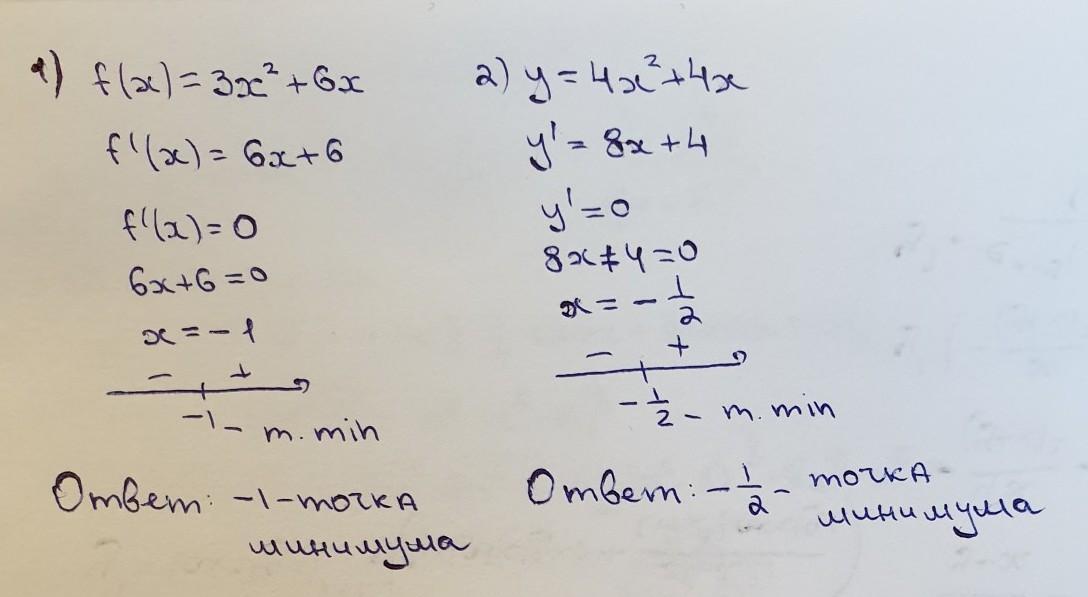 1) f(x) = 3x² + 6x
f'(x) = 6x + 6
f'(x) = 0
6x + 6 = 0
x = -1
- +
-1 - т. min
Ответ: -1 - точка
минимума
2) y = 4x² + 4x
y' = 8x + 4
y' = 0
8x + 4 = 0
x = - 1/2
- +
- 1/2 - т. min
Ответ: - 1/2 - точка
минимума